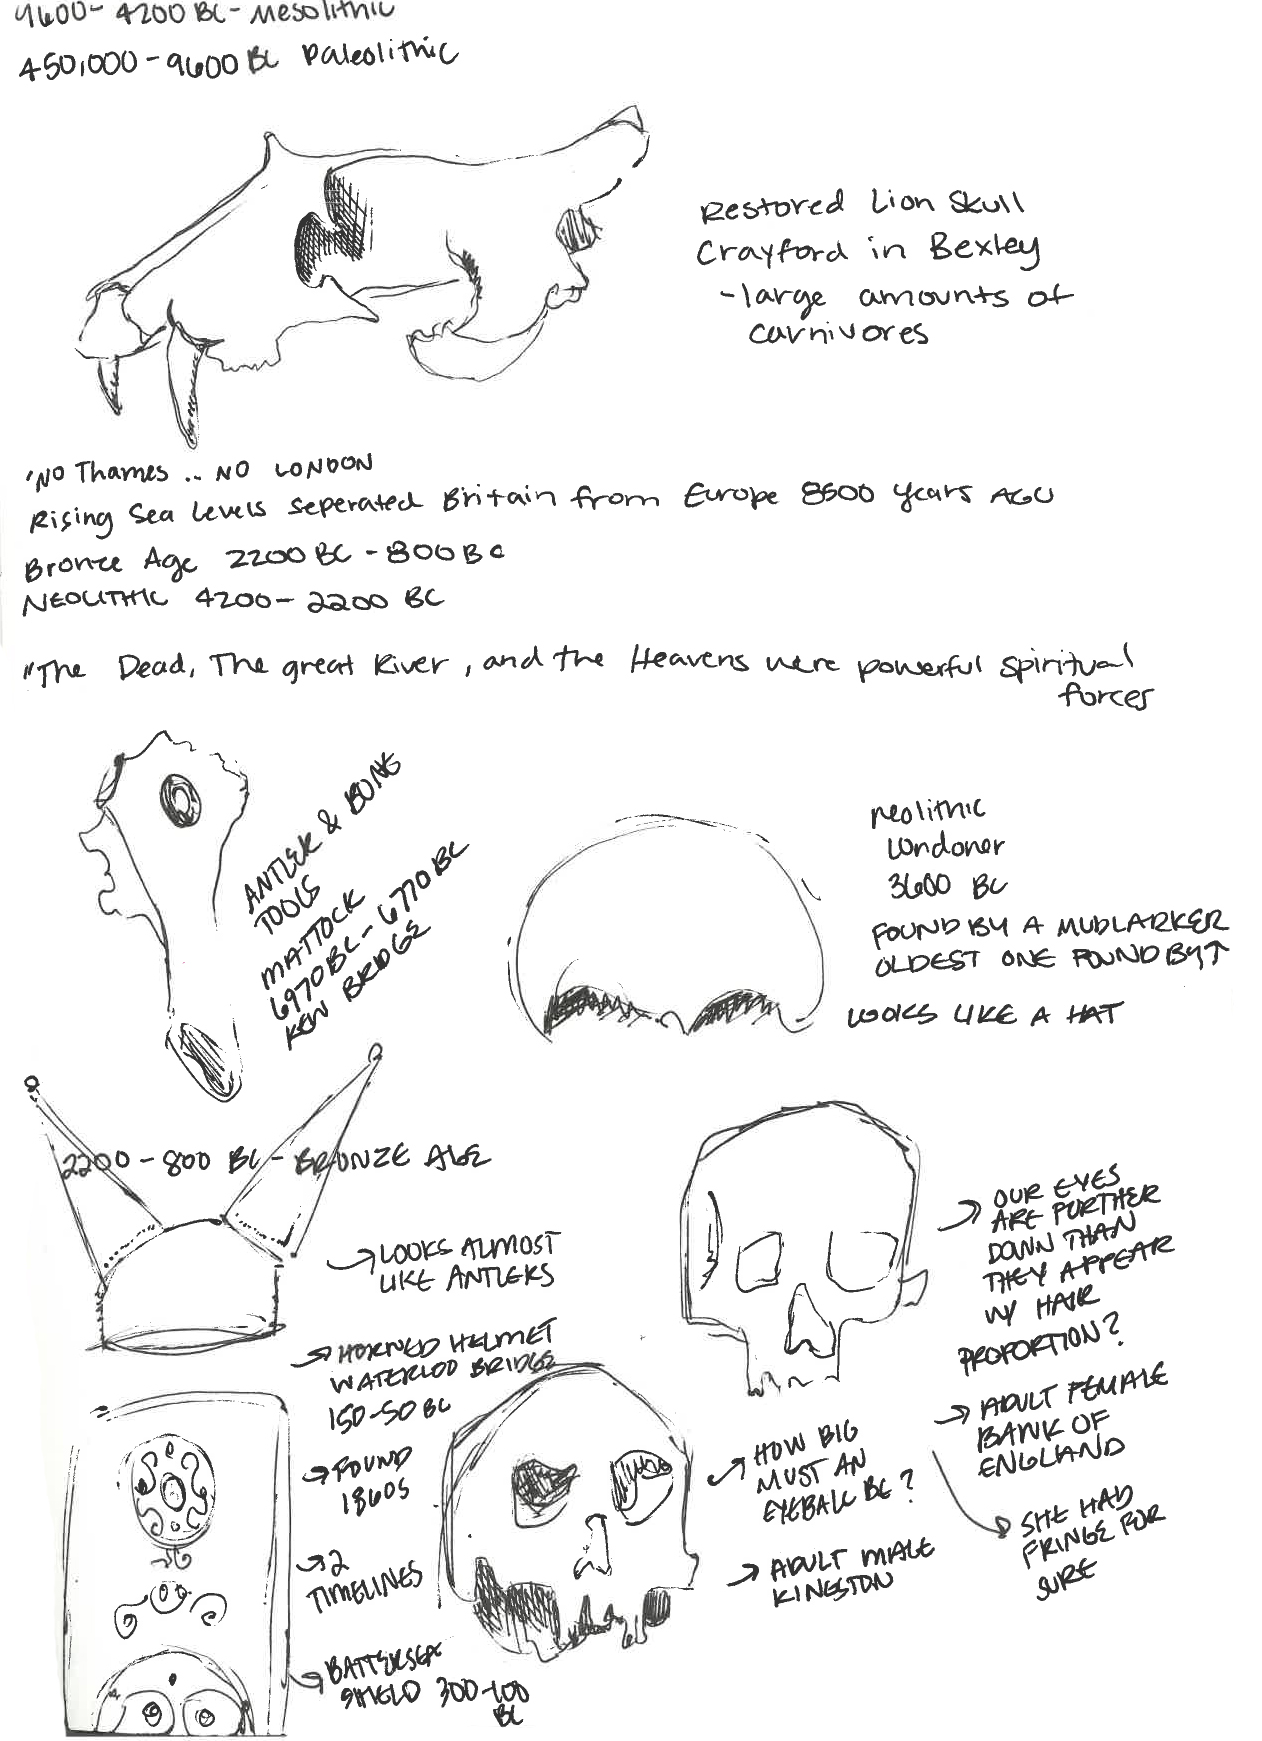 9600-4200 BC- Mesolithic
450,000-9600 BC Paleolithic
Restored Lion Skull
Crayford in Bexley
-large amounts of
carnivores
"NO Thames .. NO LONDON
Rising Sea Levels Seperated Britain from Europe 8500 years AGO
Bronze Age 2200 BC - 800 BC
NEOLITHIC 4200-2200 BC
"The Dead, The great River, and the Heavens were powerful spiritual
forces
ANTLER & BONE
TOOLS
MATTOCK
6970 BC - 6770 BC
KEW BRIDGE
neolithic
Londoner
3600 BC
FOUND BY A MUDLARKER
OLDEST ONE FOUND BY↑
LOOKS LIKE A HAT
2200-800 BC - BRONZE AGE
→LOOKS ALMOST
LIKE ANTLERS
→HORNED HELMET
WATERLOO BRIDGE
150-50 BC
→FOUND
1860S
→2
TIMELINES
→BATTERSEA
SHIELD 300-100
BC
→ OUR EYES
ARE FURTHER
DOWN THAN
THEY APPEAR
W/ HAIR
PROPORTION?
→ ADULT FEMALE
BANK OF
ENGLAND
→ SHE HAD
FRINGE FOR
SURE
→ HOW BIG
MUST AN
EYEBALL BE?
→ ADULT MALE
KINGSTON